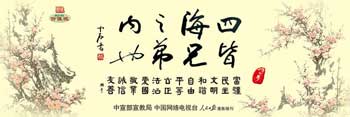 四海之内
皆兄弟也
富强
民主
文明
和諧
自由
平等
公正
法治
愛國
敬業
誠信
友善
中宣部宣教局 中国网络电视台 人民日报